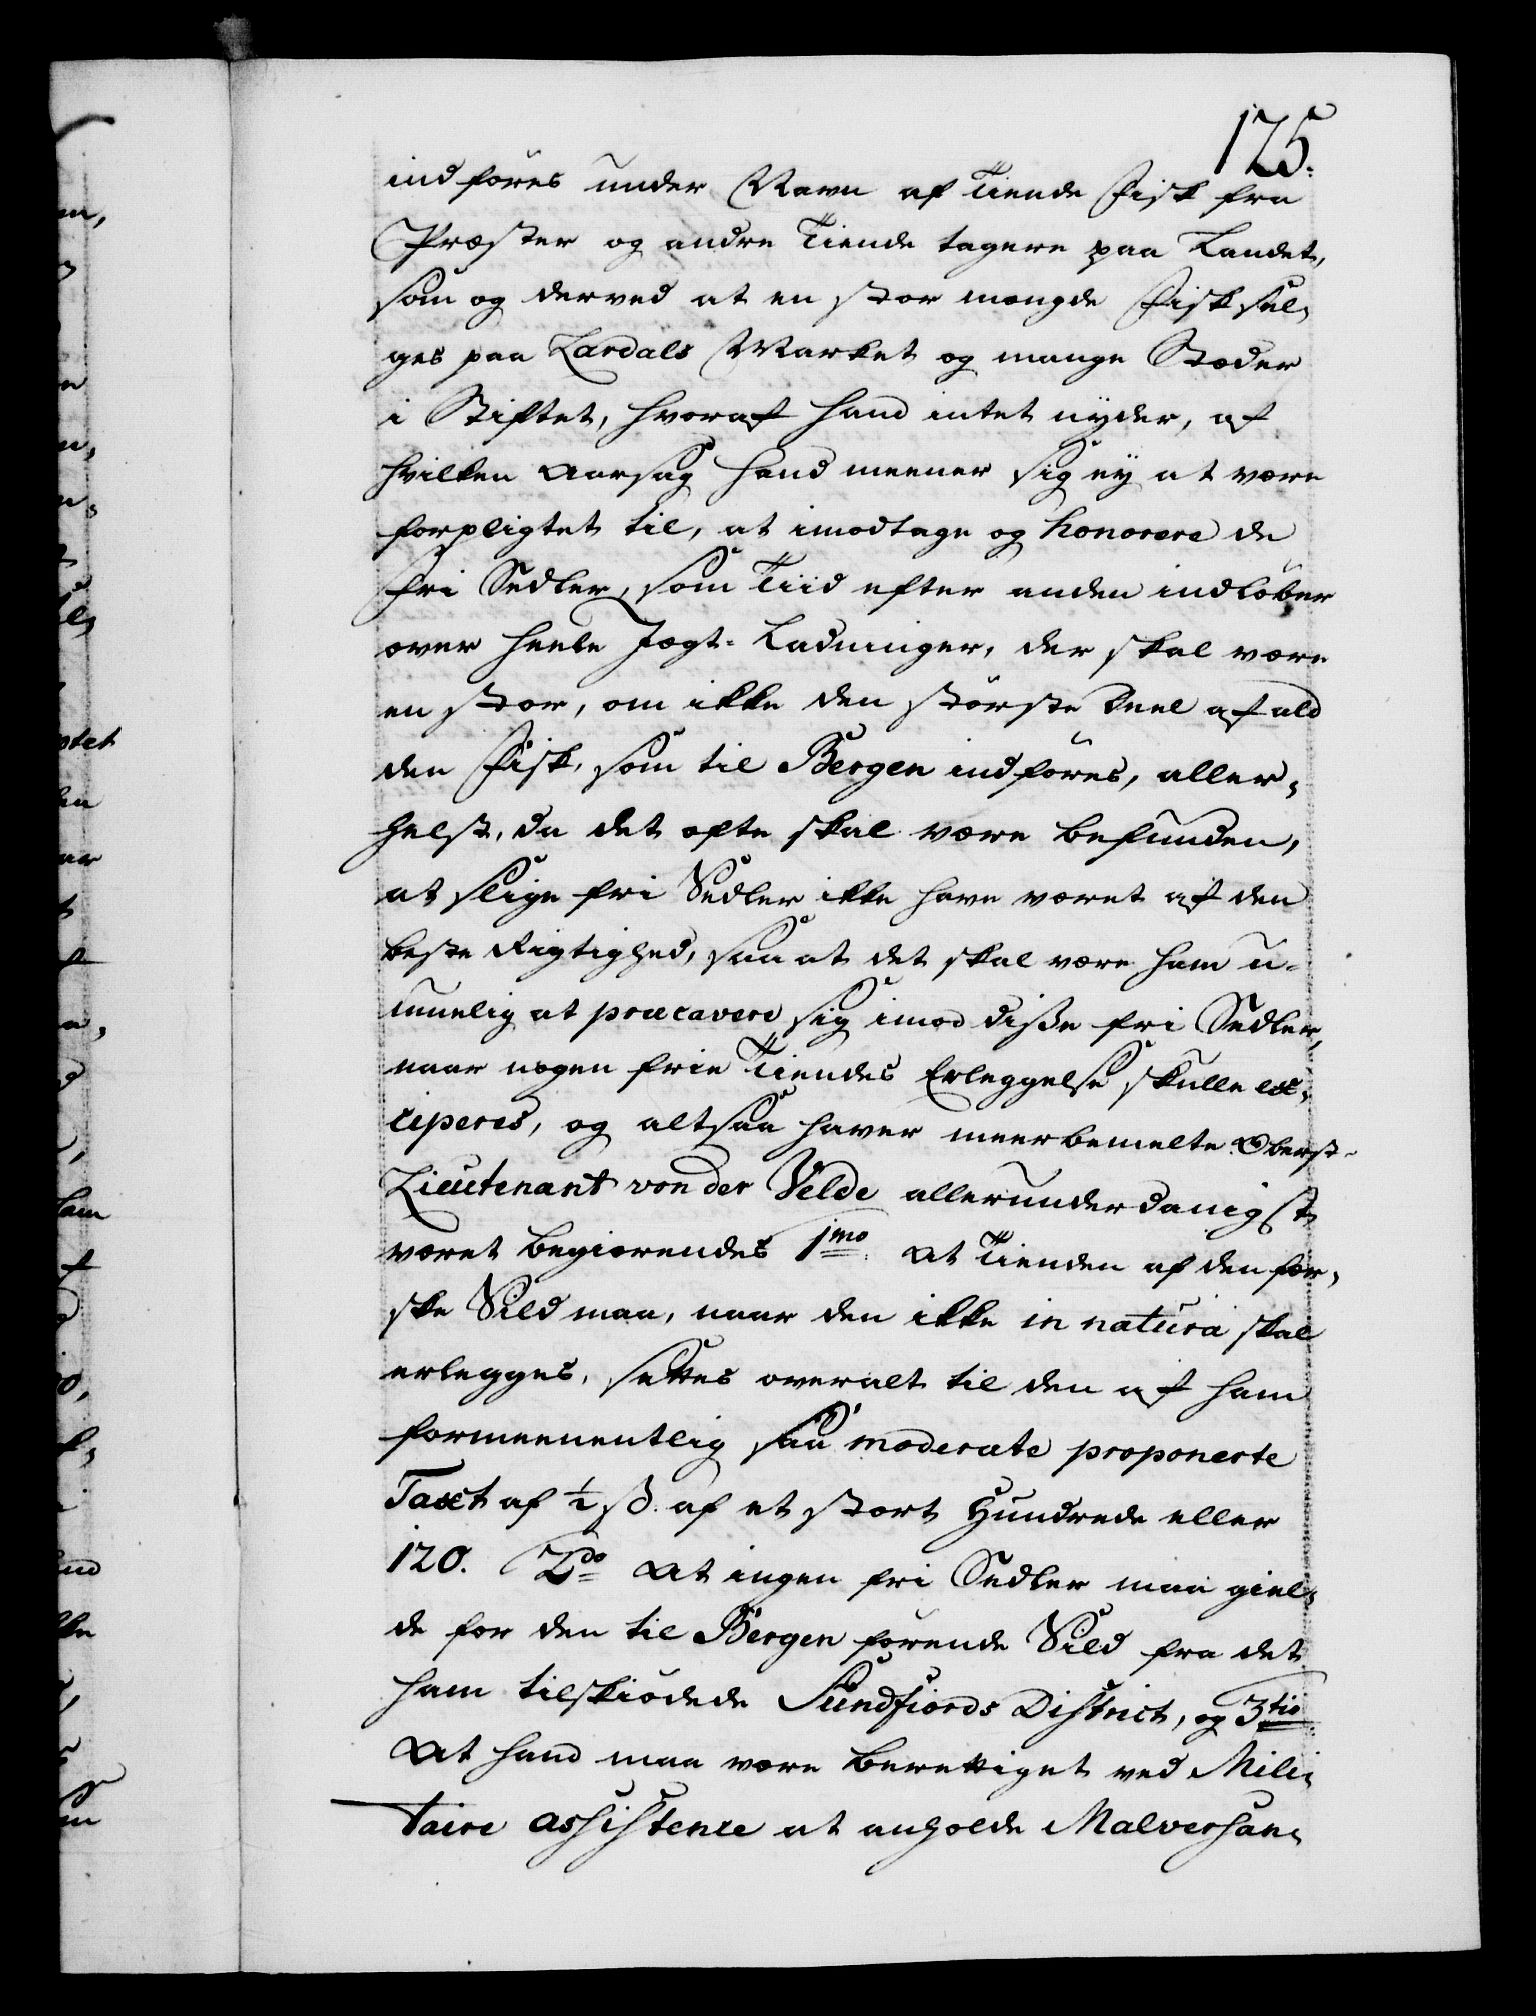 125.
indföres under Navn af Tiende Fisk fra
Præster og andre Tiende tagere paa Landet,
som og derved at en stor mængde Fisk sæl-
ges paa Lardals Market og mange Stæder
i Stiftet, hvoraf hand intet nyder, af
hvilken Aarsag hand meener sig ey at være
forpligtet til, at imodtage og honorere de
fri Sedler, som Tiid efter anden indlöber
over heele Jægt-Ladninger, der skal være
en stor, om ikke den störste Deel af ald
den Fisk, som til Bergen indföres, aller-
helst, da det ofte skal være befunden,
at slige fri Sedler ikke have været af den
beste Rigtighed, saa at det skal være ham u-
muelig at præcavere sig imod disse fri Sedler,
naar nogen frie Tiendes Erleggelse skulle ex-
ciperes, og altsaa haver meerbemelte Oberst-
Lieutenant von der Velde allerunderdanigst
været begiærendes 1mo. At Tienden af den fer-
ske Sild maa, naar den ikke in natura skal
erlegges, settes overalt til den af ham
formeenentlig saa moderate proponerte
Taxt af ½ ß. af et stort Hundrede eller
120. 2do At ingen fri Sedler maa giel-
de for den til Bergen förende Sild fra det
ham tilskiödede Sundfiords District, og 3tio
At hand maa være berettiget ved Mili-
taire assistence at anholde Malversan-